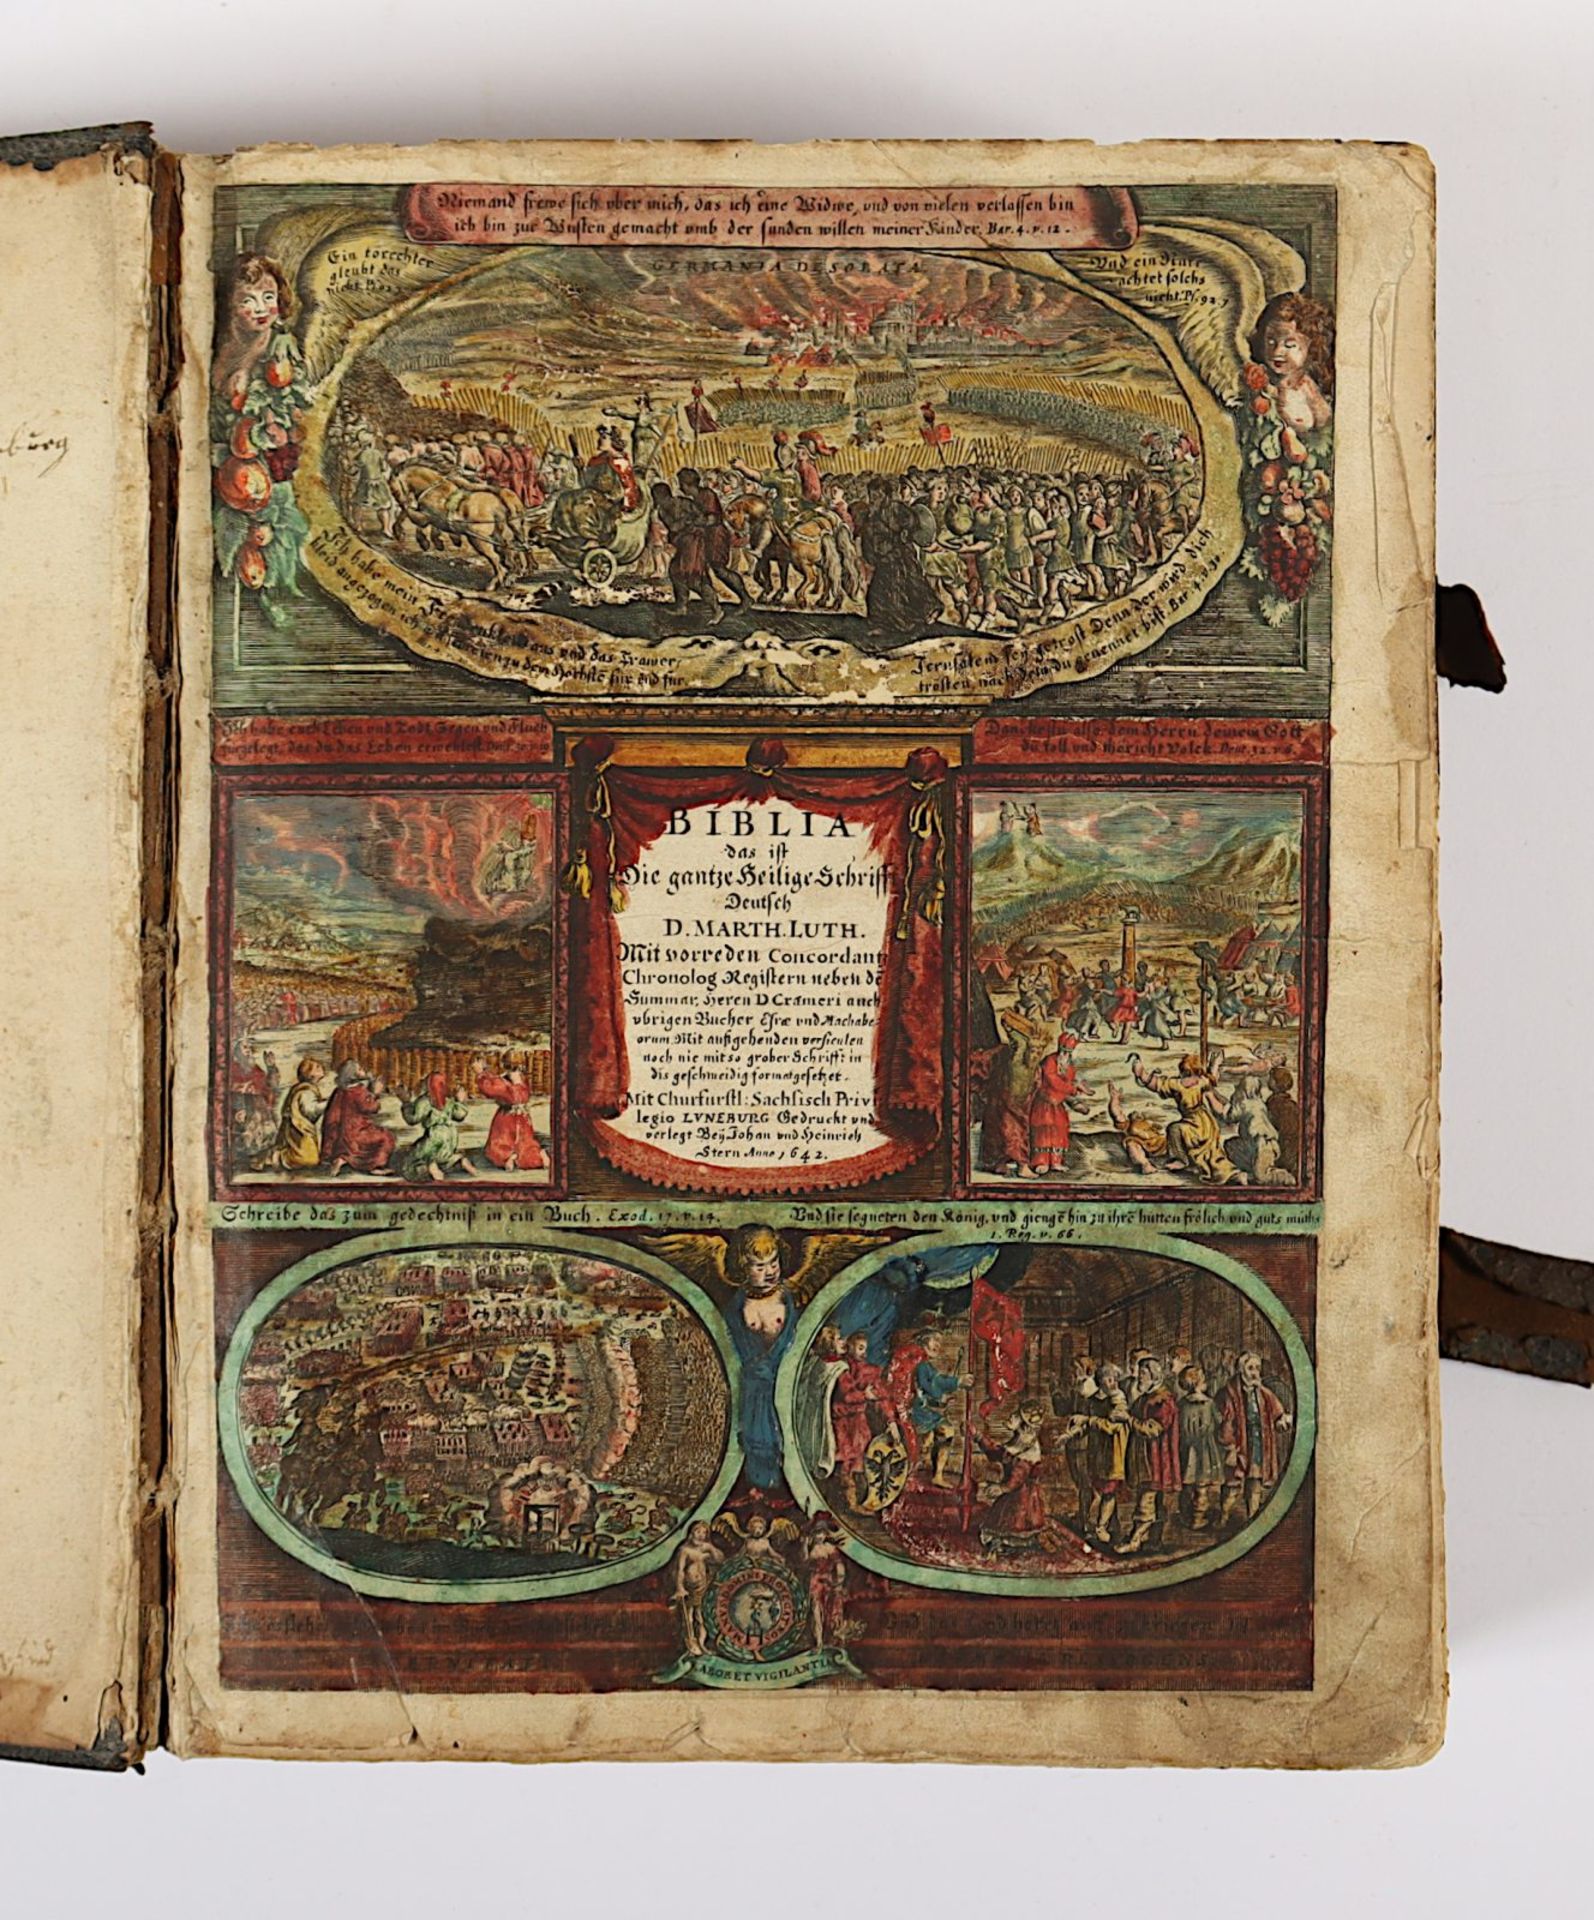 Niemand frewe sich vber mich, das ich eine Widwe, vnd von vielen verlassen bin
ich bin zur Wüsten gemacht vmb der sunden willen meiner Kinder. Bar. 4. v. 12.
Ein torechter
gleubt das
nicht
GERMANIA DESOLATA
Vnd ein Narr
achtet solchs
nicht. Ps. 92. 7
Ich habe mein
aus vnd das Trawer
kleid angezogen ich
zu dem Höchste für vnd für
Jerusalem sey getrost Denn der wird dich
trösten, nach dem du genennet bist. Bar. 4. v. 30.
Ich habe euch Leben vnd Todt Segen vnd Fluch
furgelegt, das du das Leben erwehlest.
Danckestu also dem Herrn deinem Gott
du toll vnd thöricht Volck. Deut. 32. v. 6.
BIBLIA
das ist
Die gantze Heilige Schrifft
Deutsch
D. MARTH. LUTH.
Mit vorreden Concordantz
Chronolog Registern neben dē
Summar, Heren D Crameri auch
vbrigen Bucher Esræ vnd Machabe
orum. Mit außgehenden versiculen
noch nie mit so grober Schrifft in
dis geschmeidig format gesetzet.
Mit Churfurstl: Sachsisch Privi
legio LVNEBURG Gedruckt vnd
verlegt Beÿ Johan vnd Heinrich
Stern Anno 1642.
Schreibe das zum gedechtniß in ein Buch. Exod. 17. v. 14.
Vnd sie segneten den König, vnd giengē hin zu ihrē hütten frölich vnd guts muths
1. Reg. v. 66.
LABORE ET VIGILANTIA